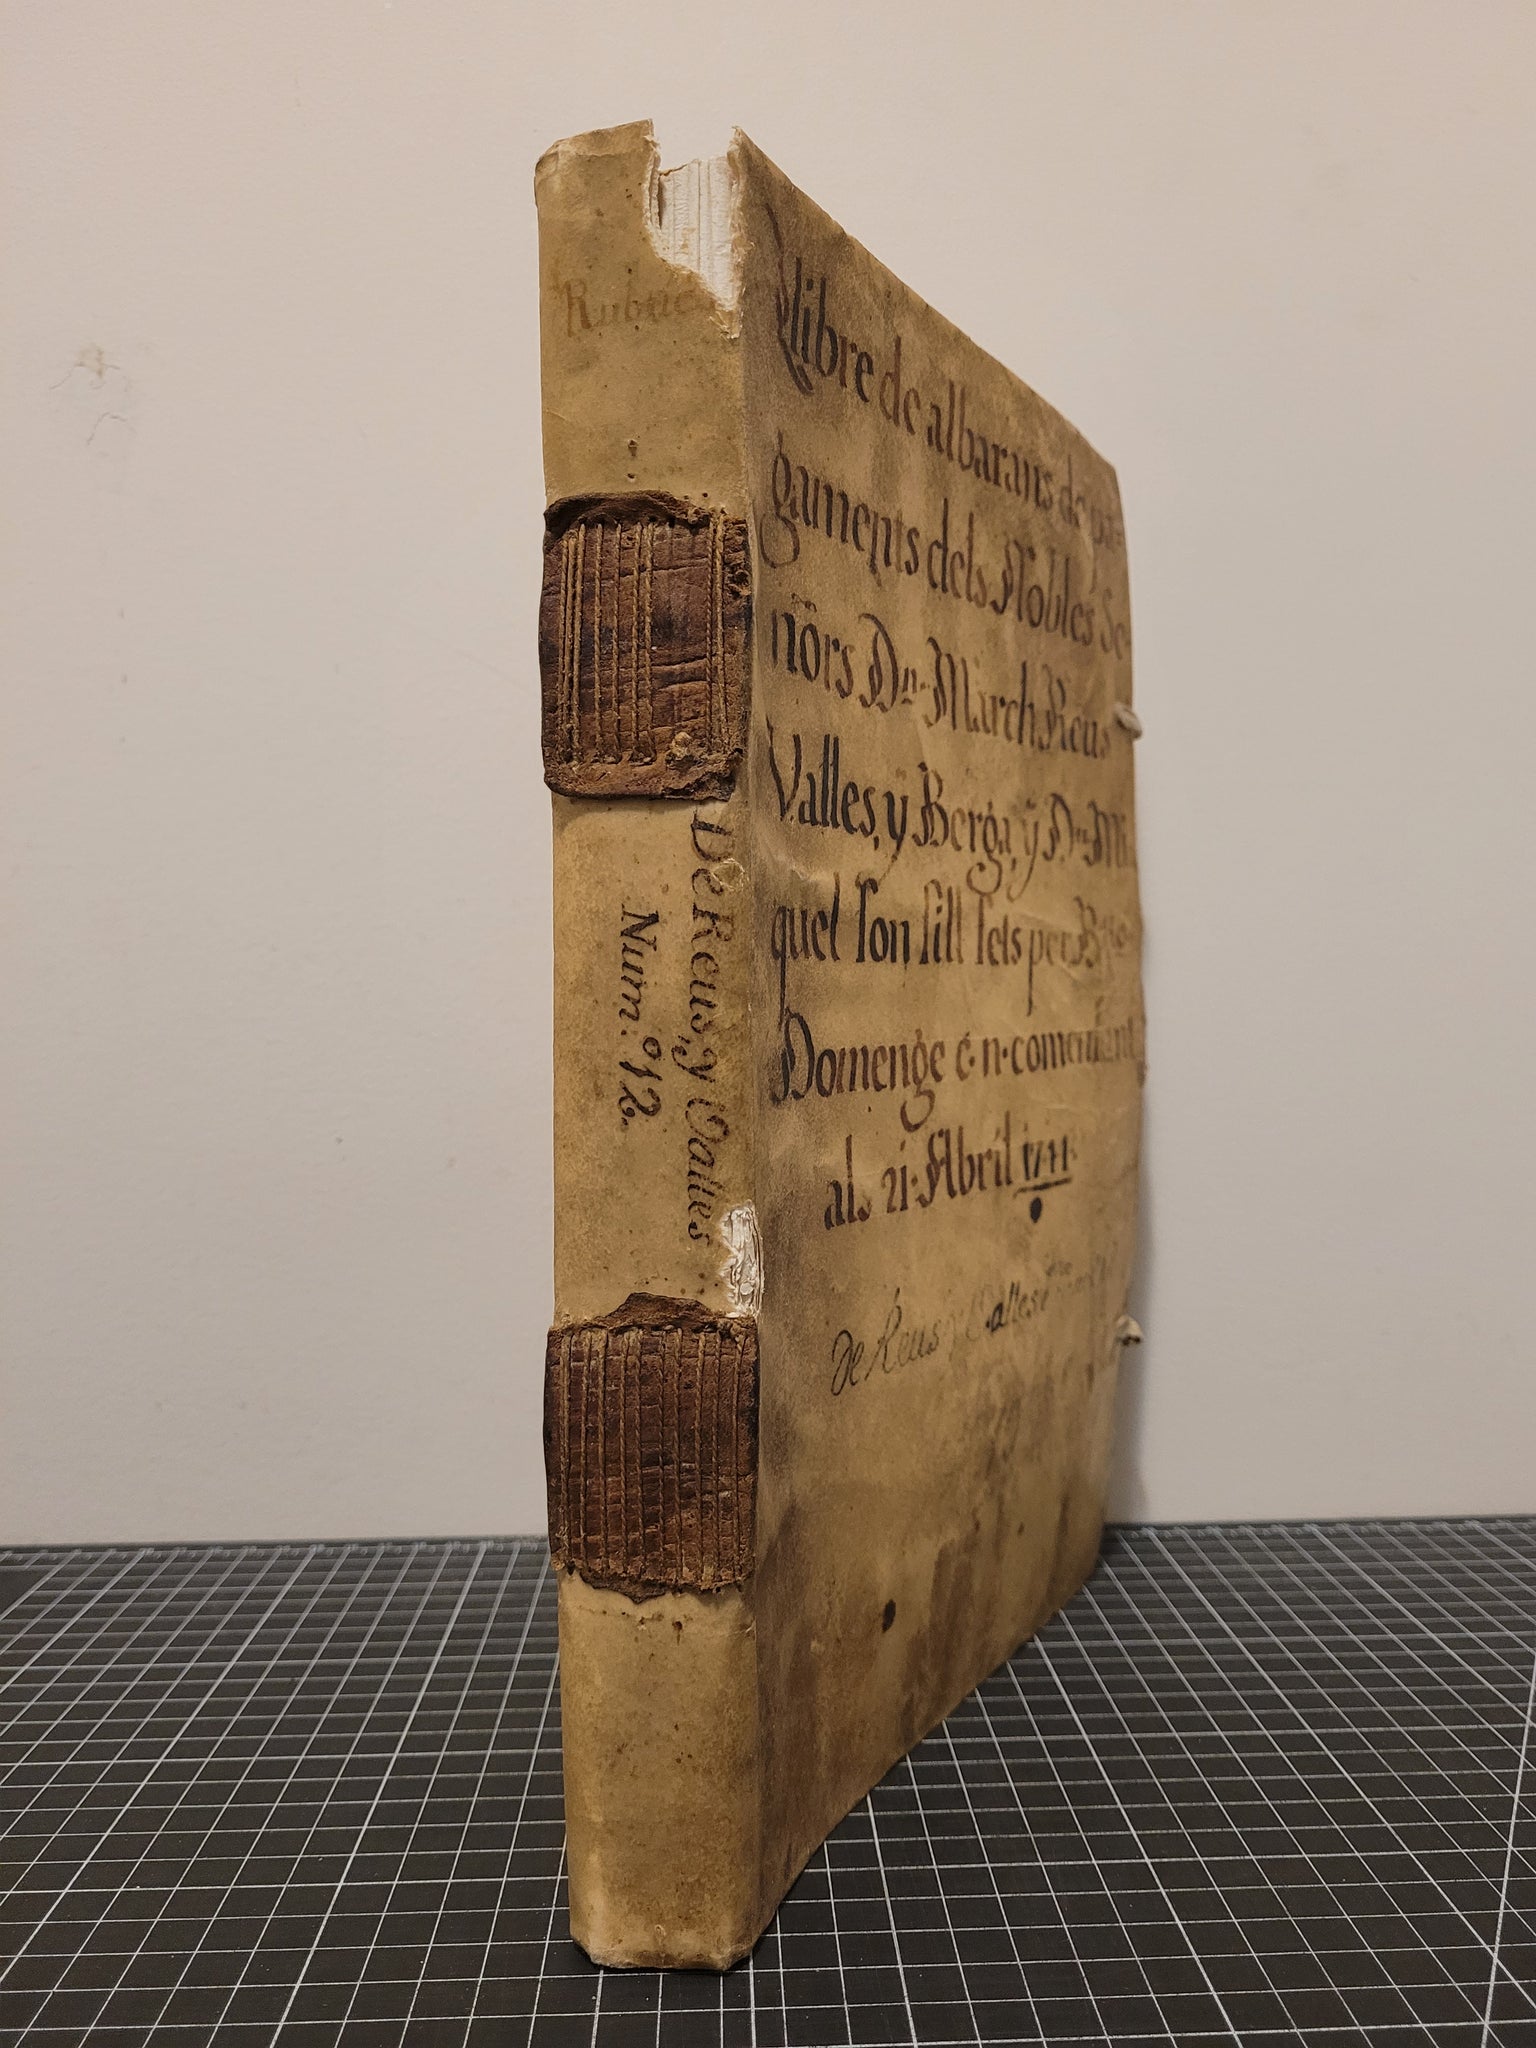 Rubric
De Reus, y Valles
Num.º 12.
Llibre de albarans de pa=
gaments dels Nobles Se-
ñors Dn. March Reus
Valles, ÿ Berga, ÿ Dn. Mi
quel son fill fets per
Domenge e. n. comensant
als 21. Abril 1741.
De Reus y Valles